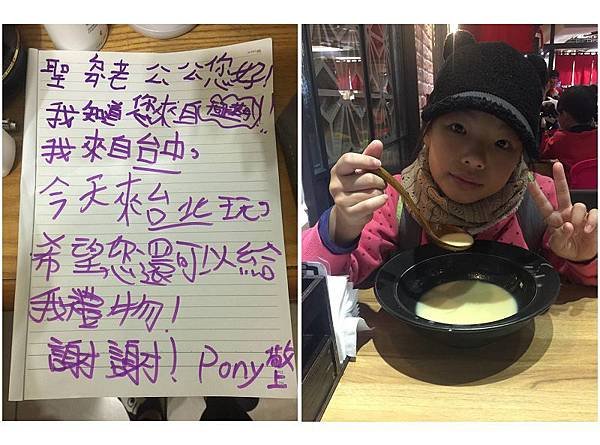 聖勞老公公您好!
我知道您來自極地!!
我來自台中。
今天來台北玩。
希望您還可以給
我禮物!
謝謝! Pony敬上